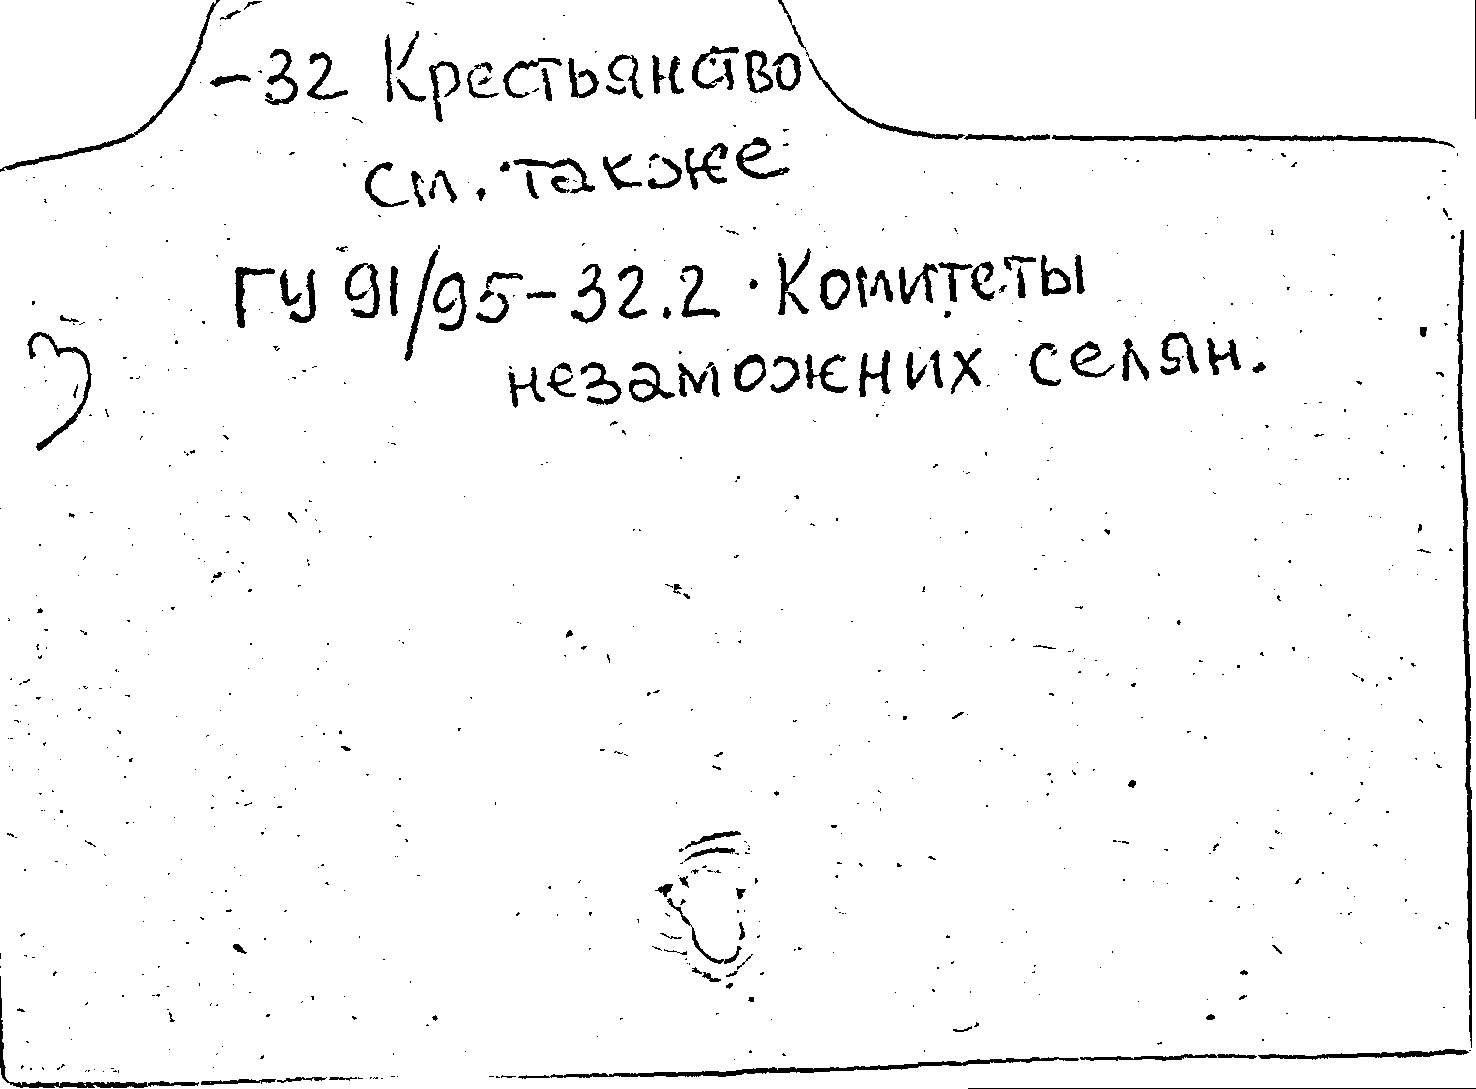 -32 Крестьянство
см. также
ГУ 91/95-32.2. Комитеты
незаможних селян.
3